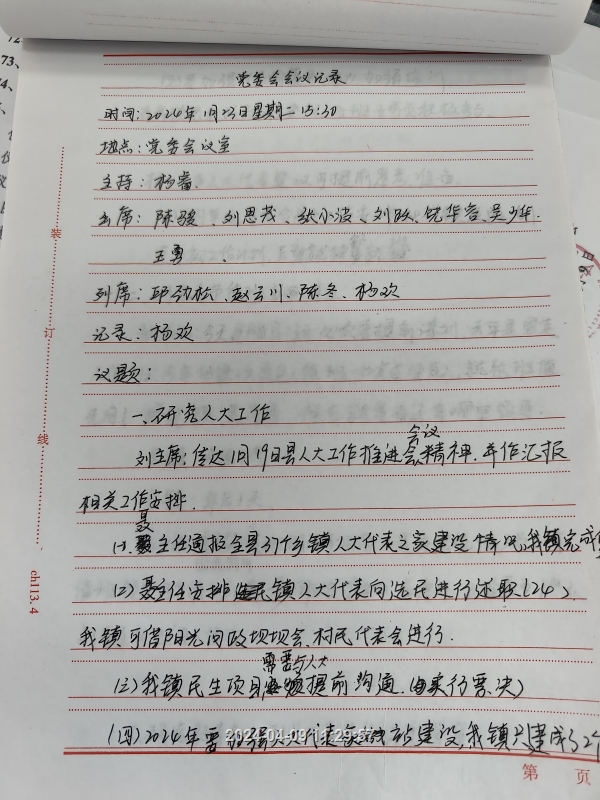 党委会会议记录
时间：2024年1月23日星期二 15:30
地点：党委会议室
主持：杨睿
出席：陈骏、刘思茂、张小波、刘、华容、吴少华、
王勇、
列席：邱劲松、赵云川、陈冬、杨欢
记录：杨欢
议题：
一、研究人大工作
刘主席：传达1月19日县人大工作推进会会议精神，并作汇报
相关工作安排。
(1). 聂主任通报全县31个乡镇人大代表之家建设情况，我镇完成
(2) 聂主任安排镇人大代表向选民进行述职(24)，
我镇可借阳光问政坝坝会、村民代表会进行.
(三)我镇民生项目需要与人大提前沟通.(票决)
(四)2024年要加强人大代表站建设，我镇建成了2个
装
订
线
ch113.4
2024-04-09
第 页